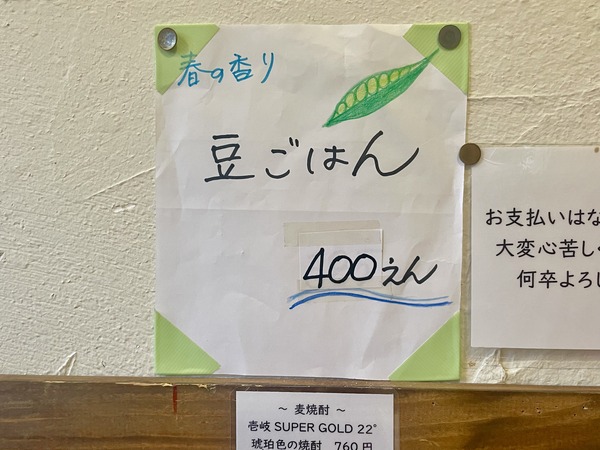 春の香り
豆ごはん
400えん
お支払いはな
大変心苦し
何卒よろし
～ 麦焼酎 ～
壱岐 SUPER GOLD 22°
琥珀色の焼酎 760円